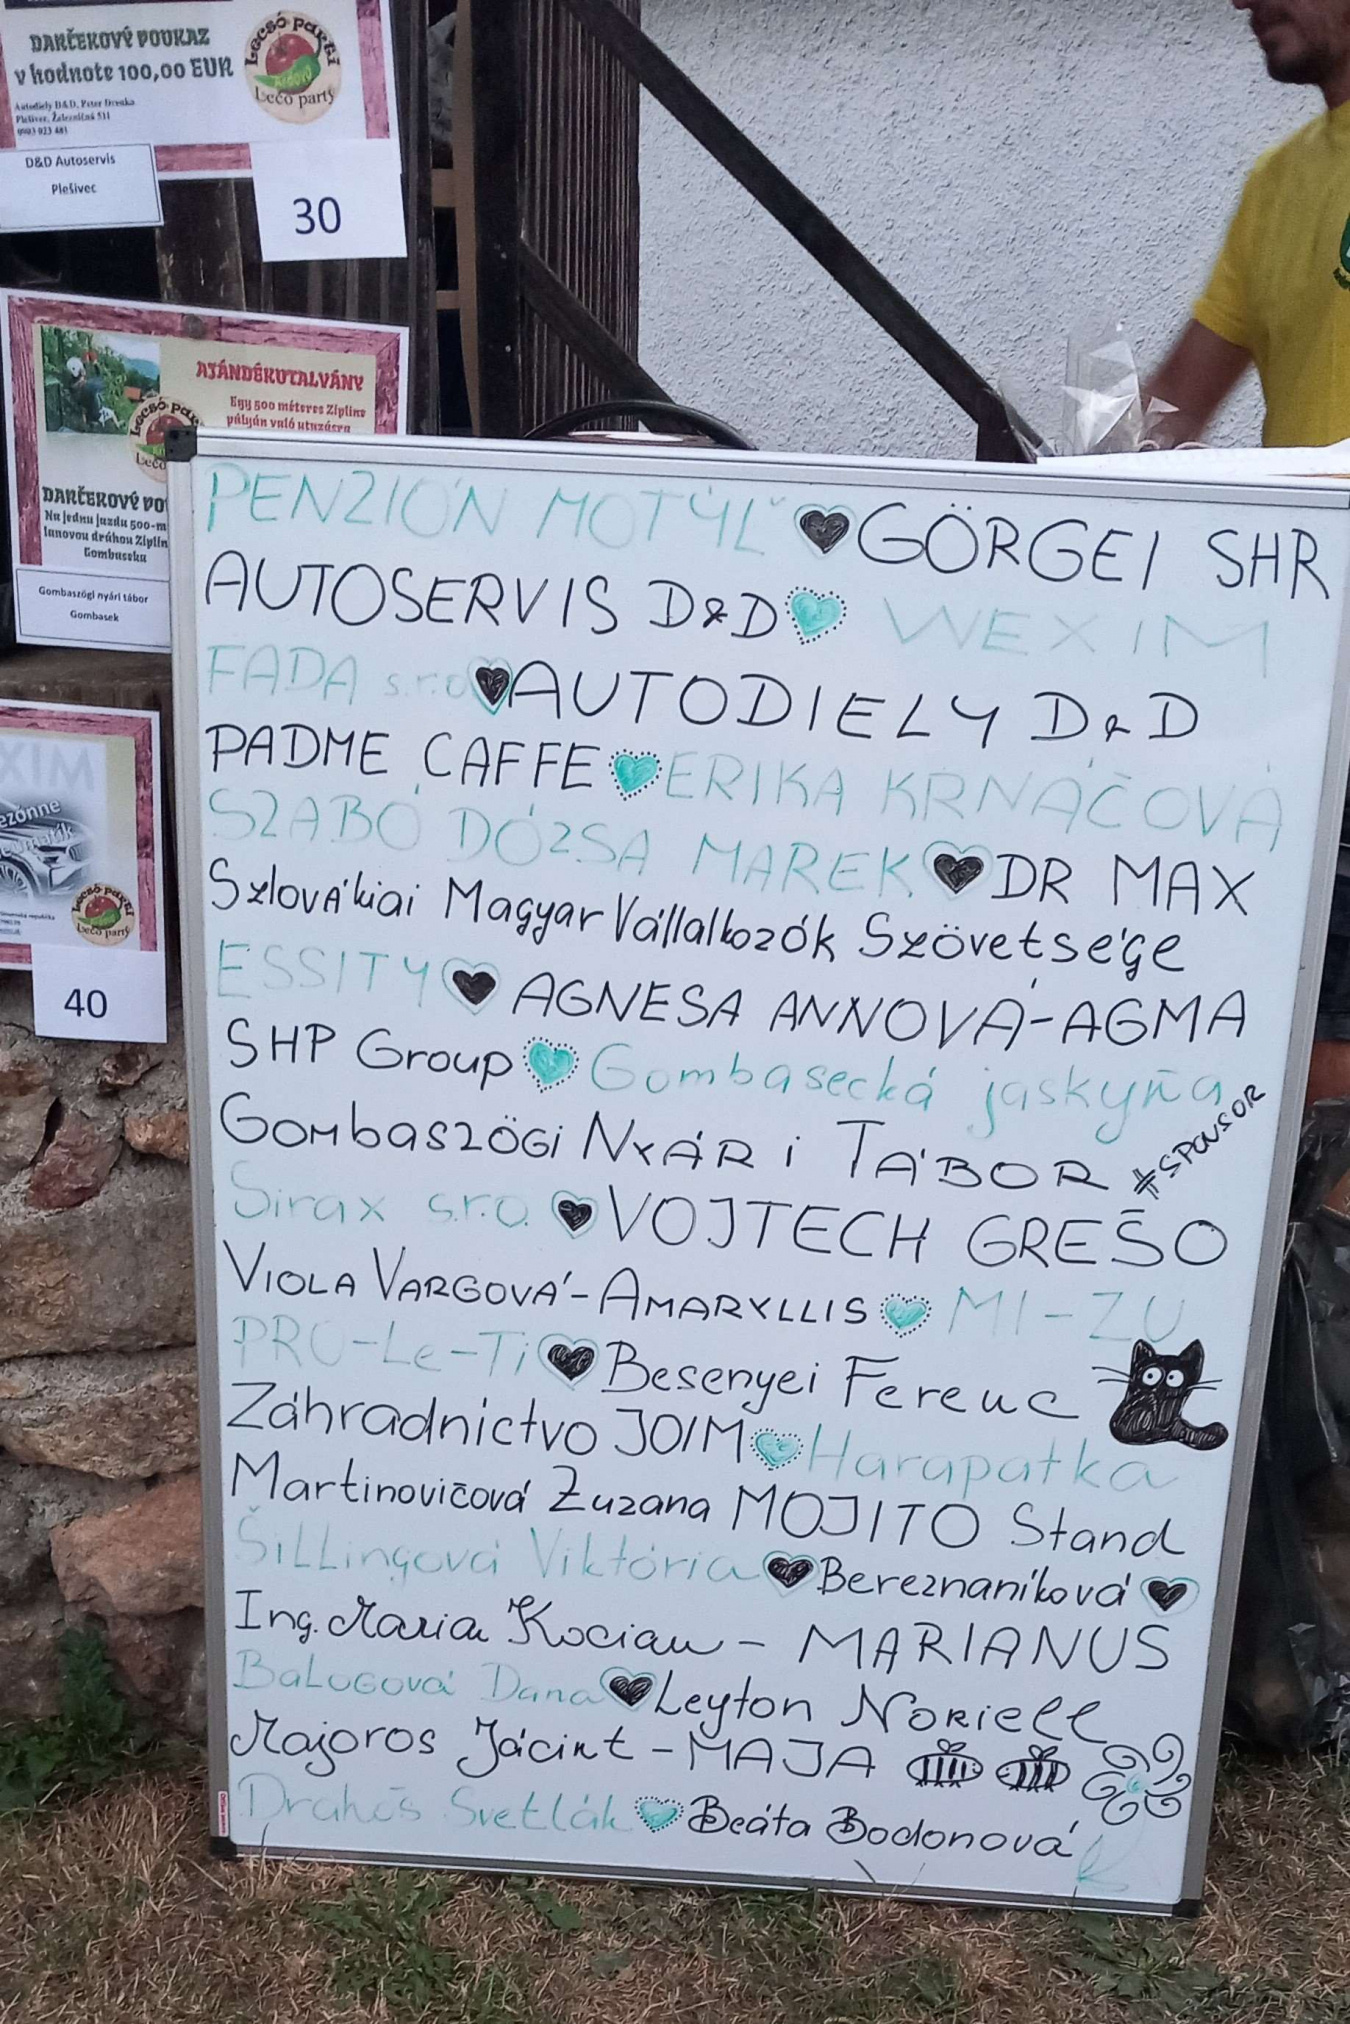 DARČEKOVÝ POUKAZ
v hodnote 100,00 EUR
Autodiely D&D, Peter Drenka
Plešivec, Železničná 511
0903 023 481
Lecsó parti
Ardovo
Lečo party
D&D Autoservis
Plešivec
30
AJÁNDÉKUTALVÁNY
Egy 500 méteres Zipline
pályán való utazásra
Lecsó
DARČEKOVÝ
Na jednu jazdu 500-m
lanovou dráhou Ziplin
Gombaseku
Gombaszögi nyári tábor
Gombasek
XIM
ezónne
Lecsó parti
Lečo party
40
PENZIÓN MOTÝĽ GÖRGEI SHR
AUTOSERVIS D&D WEXIM
FADA s.r.o AUTODIELY D&D
PADME CAFFE ERIKA KRNÁČOVÁ
SZABÓ DÓZSA MAREK DR MAX
Szlovákiai Magyar Vállalkozók Szövetsége
ESSITY AGNESA ANNOVÁ-AGMA
SHP Group Gombasecká jaskyňa
GOMBASZÖGi NYÁRi TÁBOR #SPONSOR
Sirax s.r.o. VOJTECH GREŠO
VIOLA VARGOVÁ-AMARYLLIS MI-ZU
PRO-Le-Ti Besenyei Ferenc
Záhradníctvo JOIM Harapatka
Martinovičová Zuzana MOJITO Stand
ŠiLLingová Viktória Bereznaníková
Ing. Maria Kocian - MARIANUS
BaLoGová Dana Leyton NORiell
Majoros Jácint - MAJA
Drahoš Svetlák Beáta Bodonová